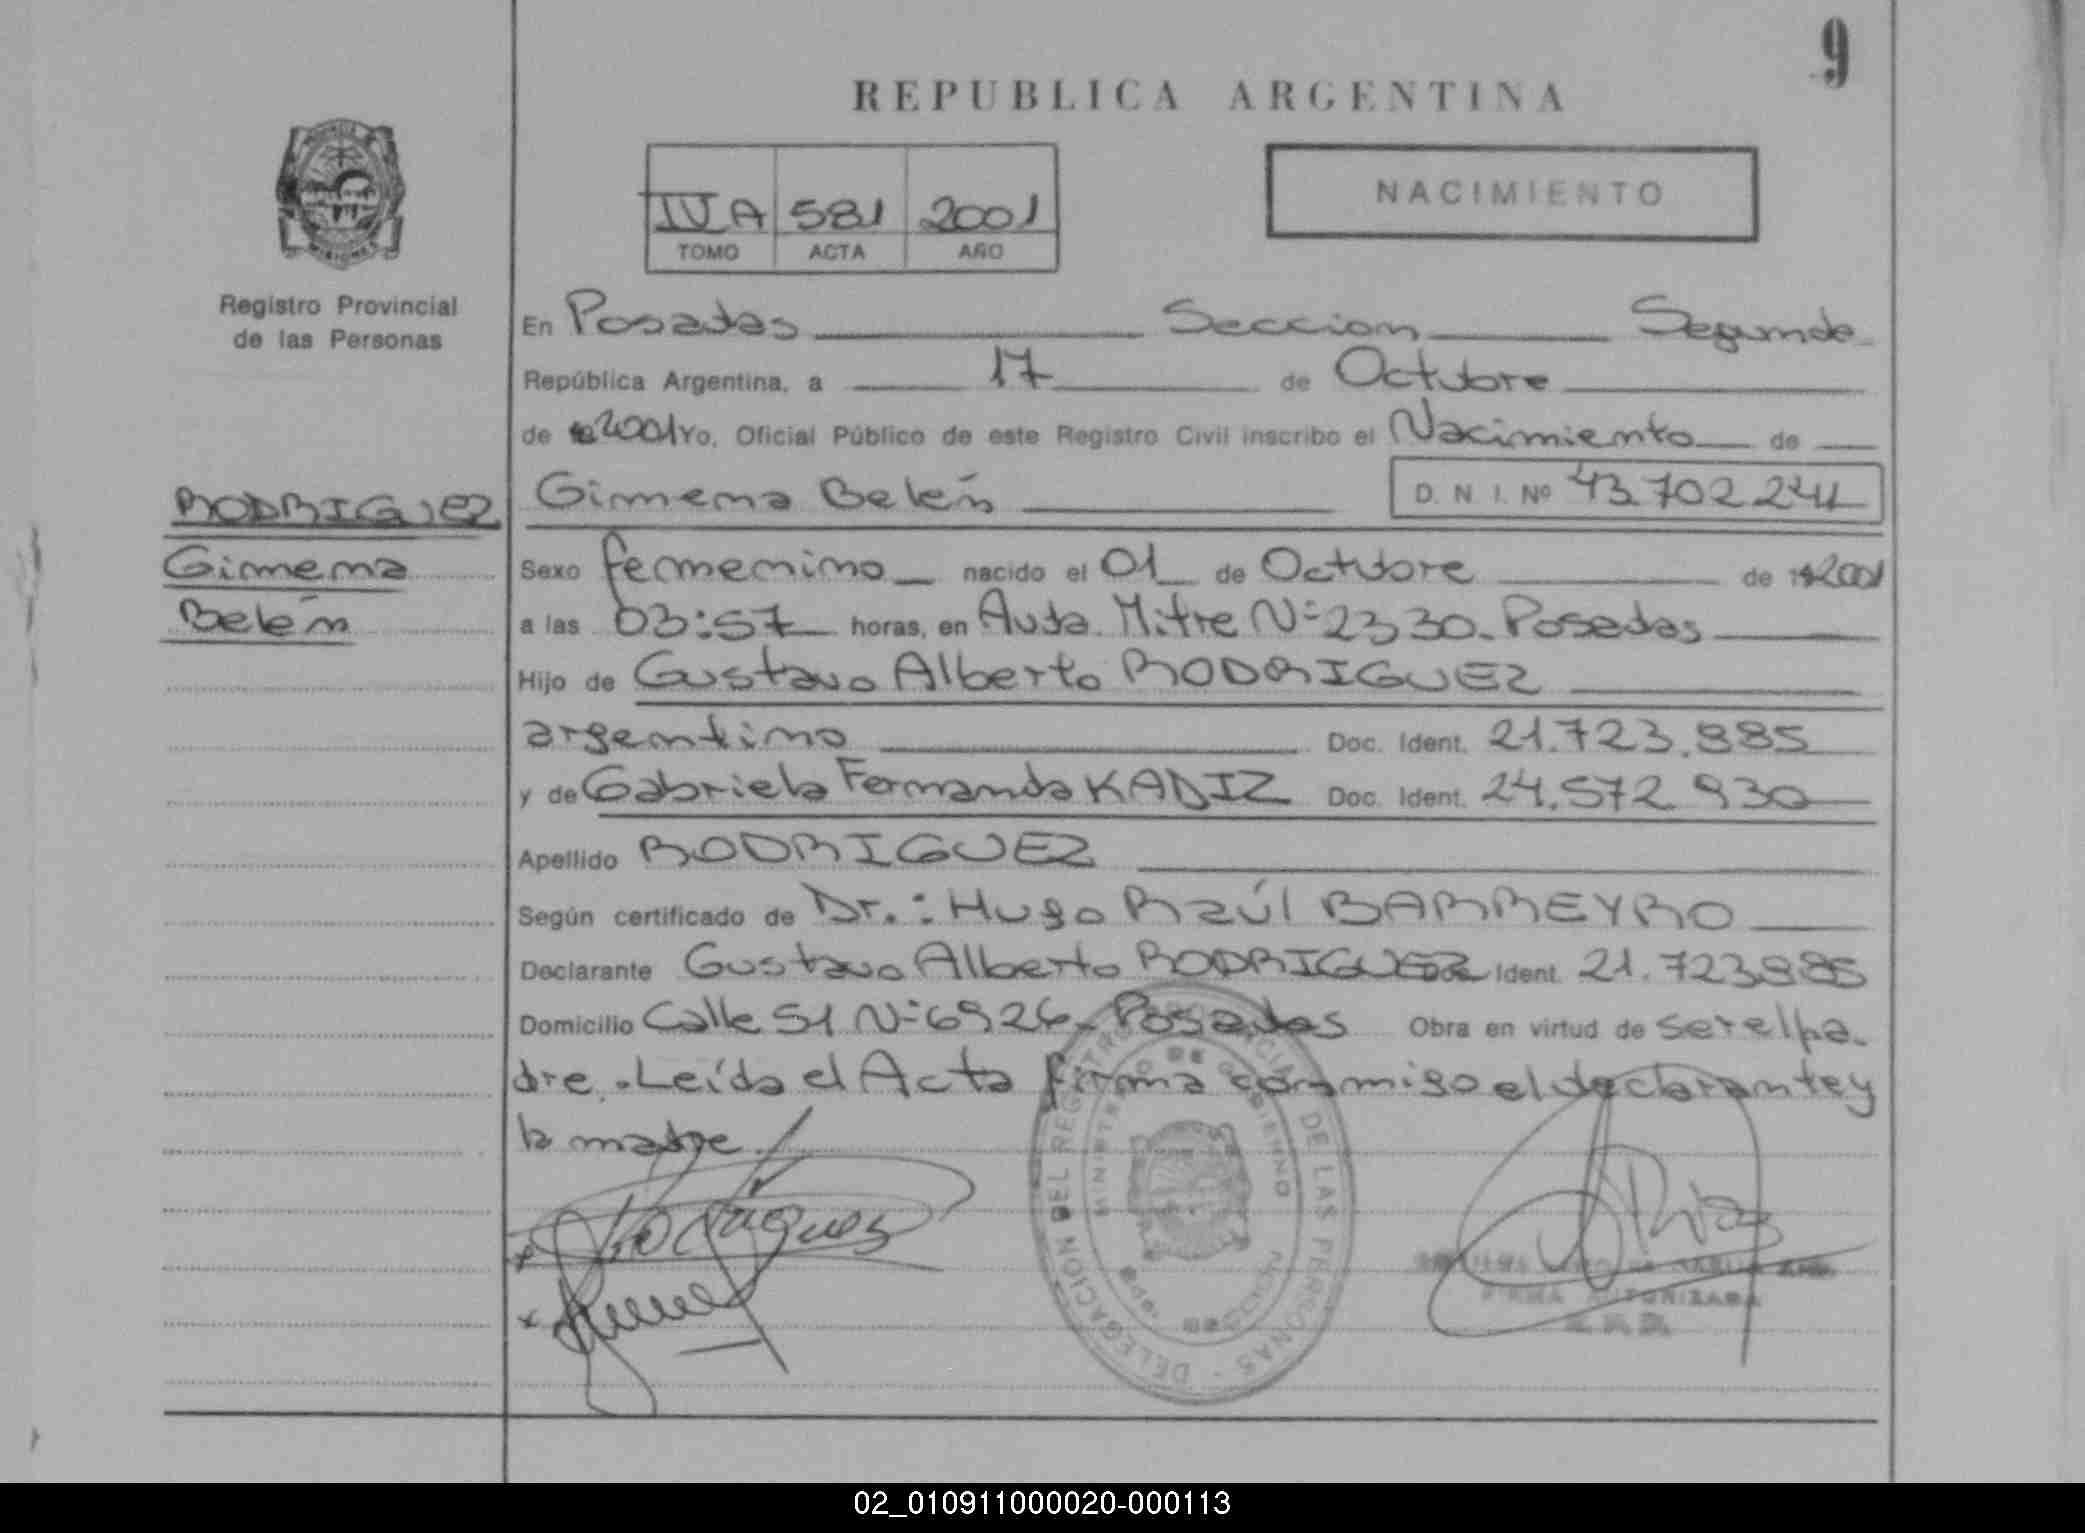 9
REPUBLICA ARGENTINA
NACIMIENTO
IV A 581 2001
TOMO ACTA AÑO
Registro Provincial
de las Personas
En Posadas Seccion Segunda
República Argentina, a 17 de Octubre
de 2001 Yo, Oficial Público de este Registro Civil inscribo el Nacimiento de
RODRIGUEZ
Gimena
Belén
Gimena Belén D. N. I. Nº 43.702.241
Sexo femenino nacido el 01 de Octubre de 2001
a las 03:57 horas, en Avda. Mitre Nº 2330 - Posadas
Hijo de Gustavo Alberto RODRIGUEZ
argentino Doc. Ident. 21.723.885
y de Gabriela Fernanda KADIZ Doc. Ident. 24.572.930
Apellido RODRIGUEZ
Según certificado de Dr.: Hugo Raúl BARREYRO
Declarante Gustavo Alberto RODRIGUEZ Ident. 21.723.885
Domicilio Calle 51 Nº 6926 - Posadas Obra en virtud de ser el pa-
dre. Leída el Acta firma conmigo el declarante y
la madre.
DELEGACION DEL REGISTRO PROVINCIAL DE LAS PERSONAS
MINISTERIO DE GOBIERNO
FIRMA AUTORIZADA
02_010911000020-000113